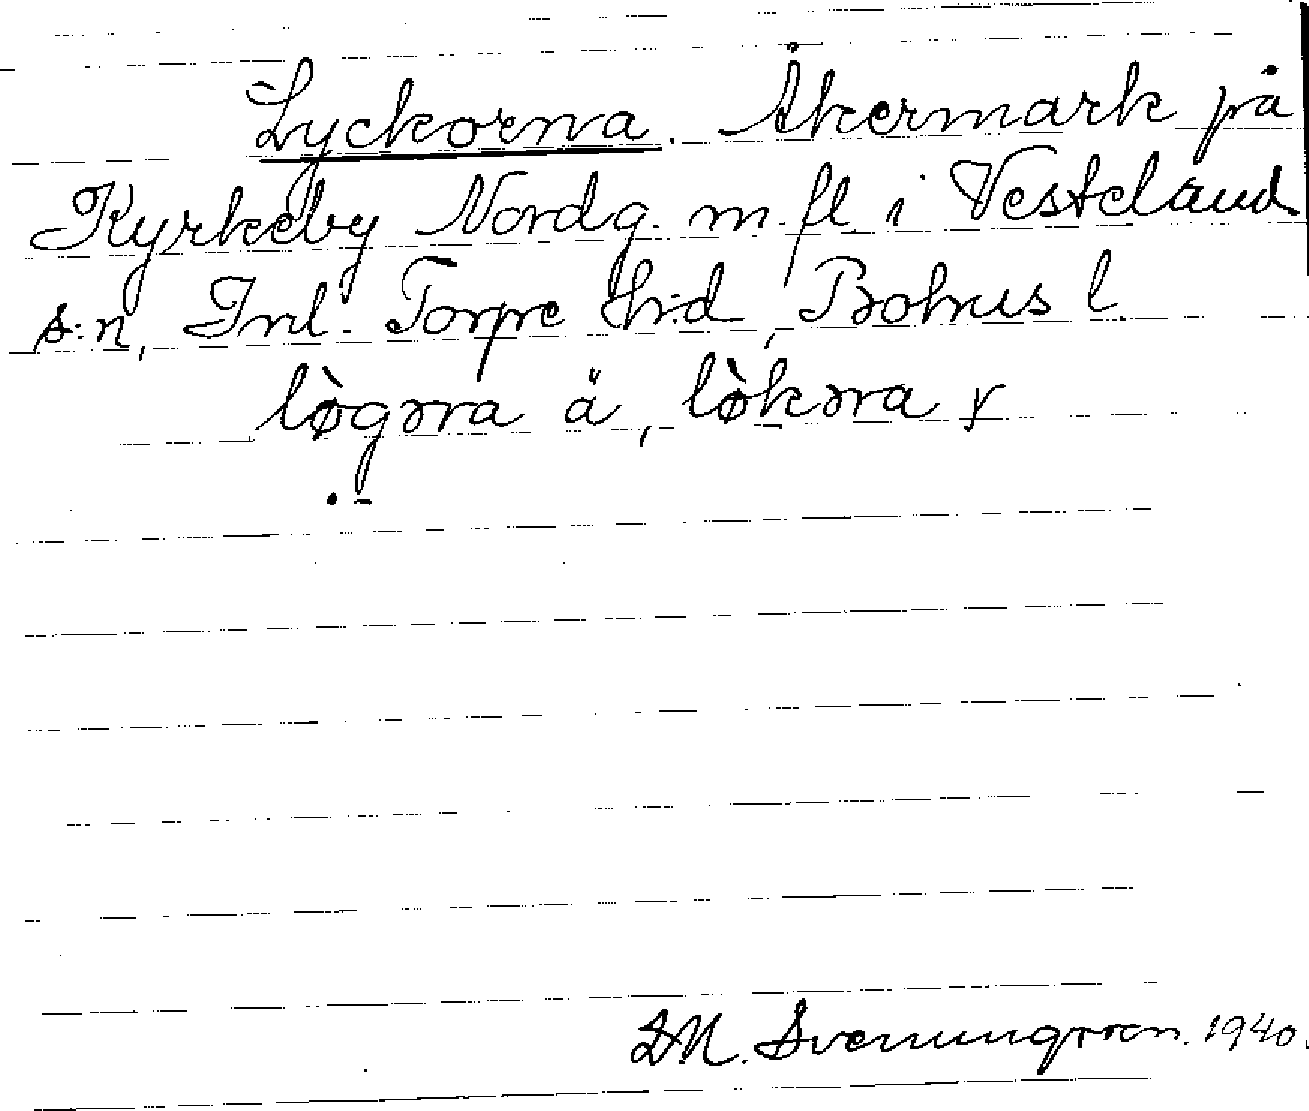 Lyckorna. Åkermark på
Kyrkeby Nordg. m fl i Vesteland
s:n, Inl. Torpe h:d, Bohus l.
lø̀gɔrɑ ä, lø̀kɔrɑ y
Svenungsson. 1940.